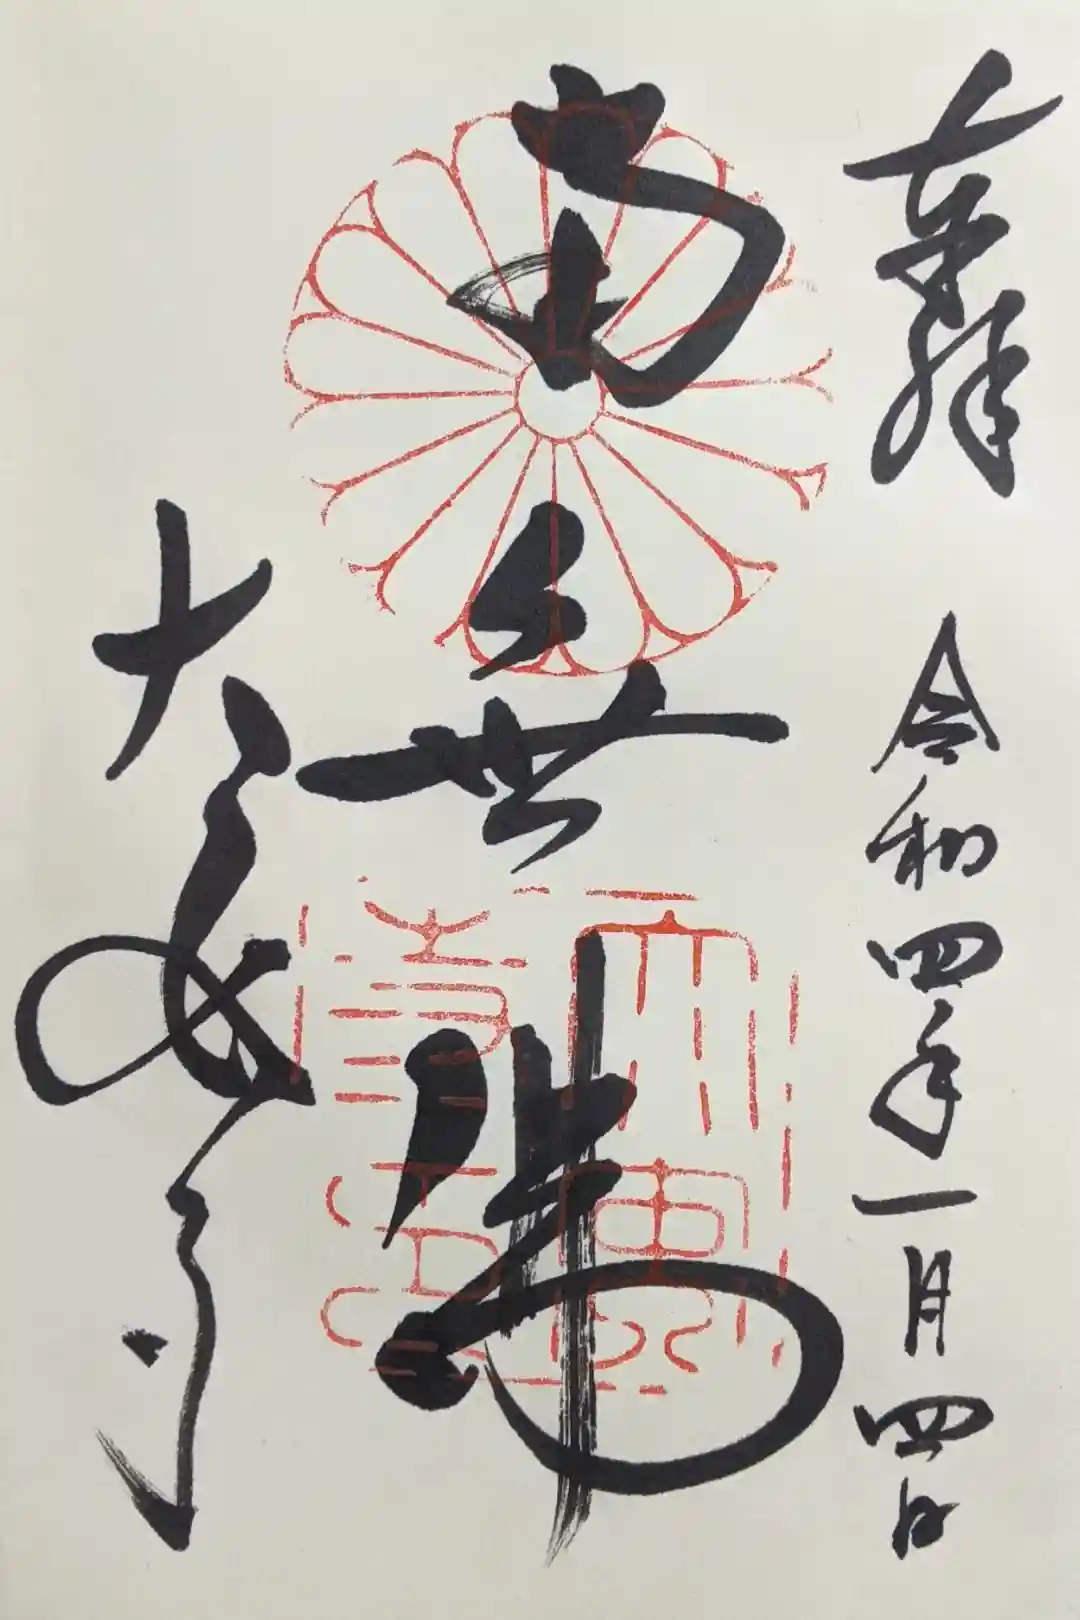 奉拝 令和四年一月四日
南無佛
大安寺